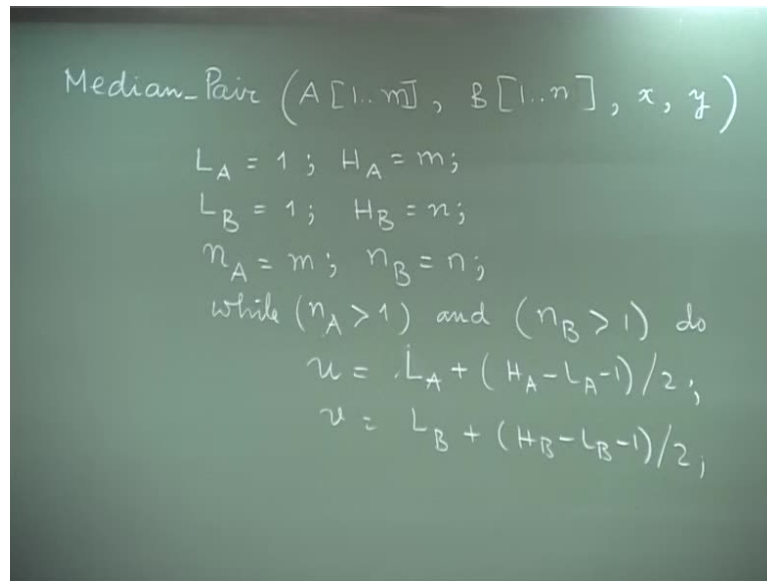 Median_Pair (A[1..m], B[1..n], x, y)
L_A = 1; H_A = m;
L_B = 1; H_B = n;
n_A = m; n_B = n;
while (n_A > 1) and (n_B > 1) do
u = L_A + (H_A - L_A - 1)/2;
v = L_B + (H_B - L_B - 1)/2;